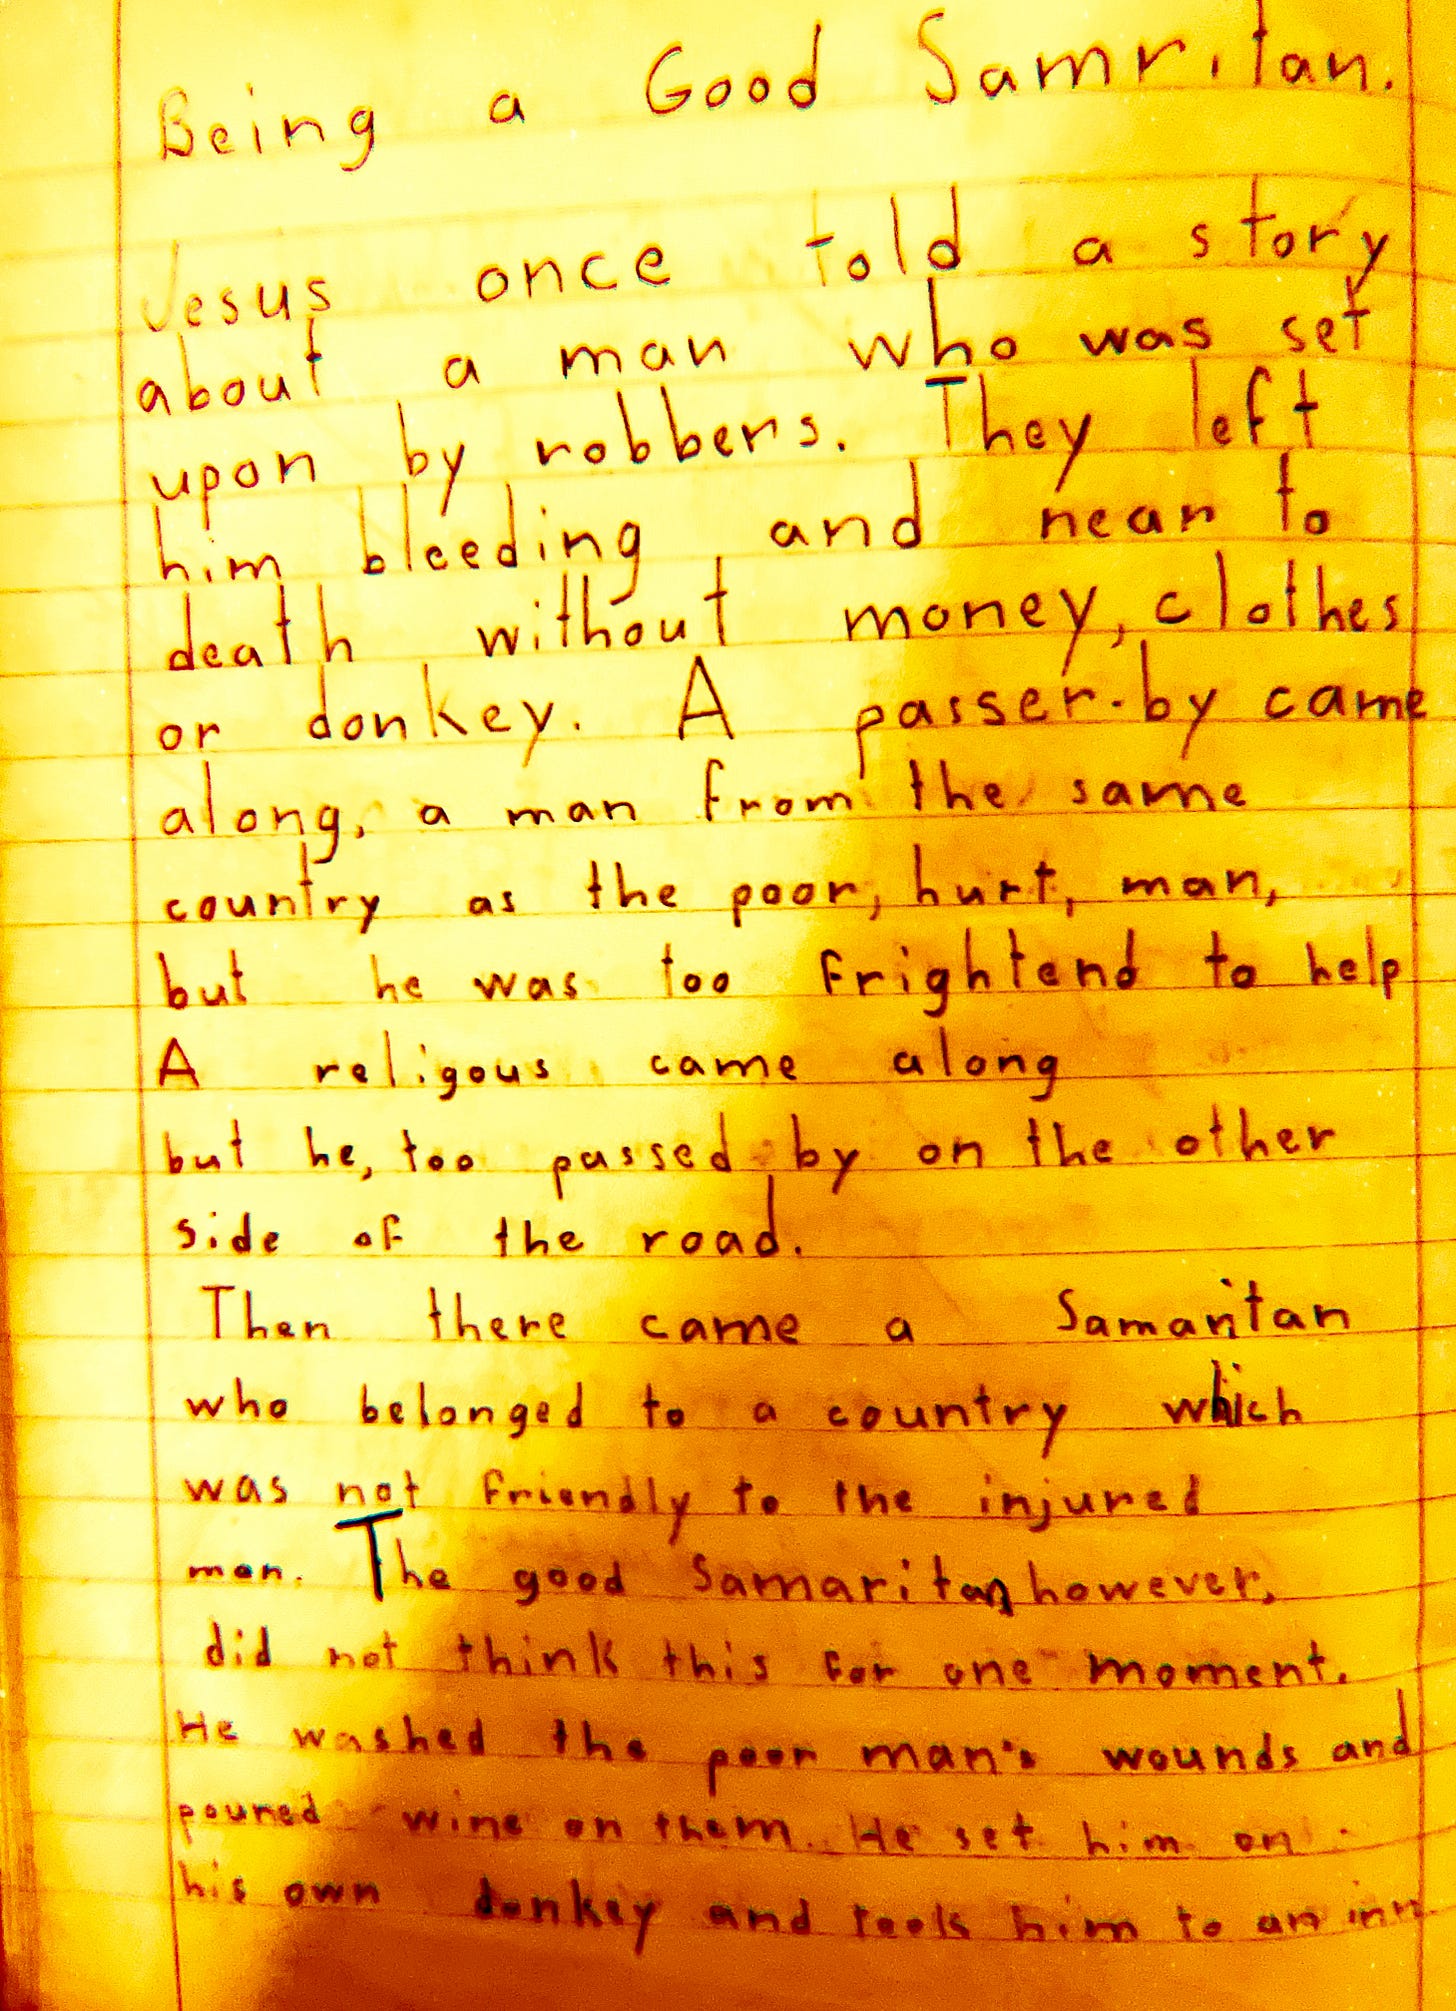 Being a Good Samritan.
Jesus once told a story
about a man who was set
upon by robbers. They left
him bleeding and near to
death without money, clothes
or donkey. A passer-by came
along, a man from the same
country as the poor, hurt, man,
but he was too frightend to help
A religous came along
but he, too passed by on the other
side of the road.
Then there came a Samaritan
who belonged to a country which
was not friendly to the injured
man. The good Samaritan however,
did not think this for one moment.
He washed the poor man's wounds and
poured wine on them. He set him on
his own donkey and took him to an inn